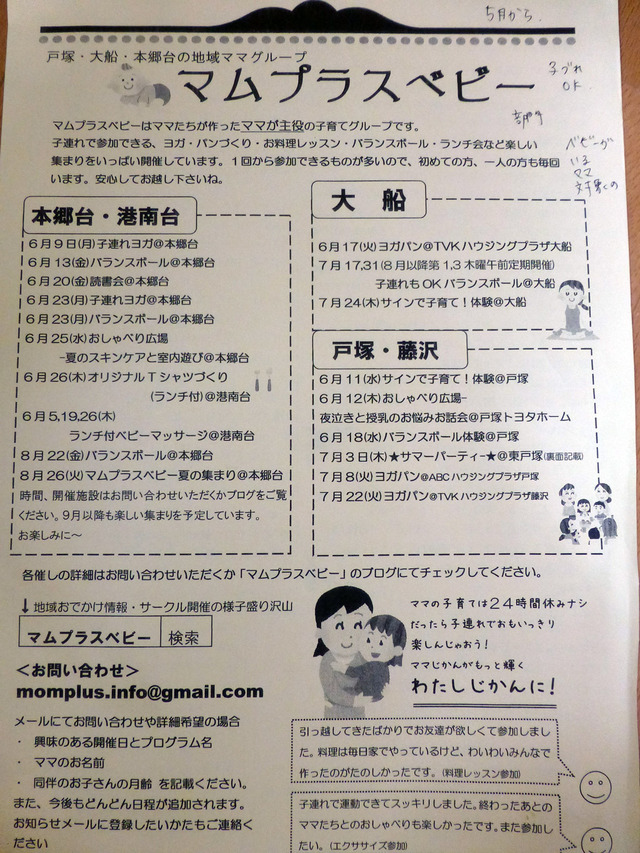 5月から
戸塚・大船・本郷台の地域ママグループ
マムプラスベビー
子づれ
OK.
専門
ベビーが
いる
ママ
対象の
マムプラスベビーはママたちが作ったママが主役の子育てグループです。
子連れで参加できる、ヨガ・パンづくり・お料理レッスン・バランスボール・ランチ会など楽しい
集まりをいっぱい開催しています。1回から参加できるものが多いので、初めての方、一人の方も毎回
います。安心してお越し下さいね。
本郷台・港南台
6月9日(月)子連れヨガ@本郷台
6月13(金)バランスボール@本郷台
6月20(金)読書会@本郷台
6月23(月)子連れヨガ@本郷台
6月23(月)バランスボール@本郷台
6月25(水)おしゃべり広場
-夏のスキンケアと室内遊び@本郷台
6月26(木)オリジナルTシャツづくり
(ランチ付)@港南台
6月5,19,26(木)
ランチ付ベビーマッサージ@港南台
8月22(金)バランスボール@本郷台
8月26(火)マムプラスベビー夏の集まり@本郷台
時間、開催施設はお問い合わせいただくかブログをご覧
ください。9月以降も楽しい集まりを予定しています。
お楽しみに～
大 船
6月17(火)ヨガパン@TVKハウジングプラザ大船
7月17,31(8月以降第1,3木曜午前定期開催)
子連れもOKバランスボール@大船
7月24(木)サインで子育て！体験@大船
戸塚・藤沢
6月11(水)サインで子育て！体験@戸塚
6月12(木)おしゃべり広場-
夜泣きと授乳のお悩みお話会@戸塚トヨタホーム
6月18(水)バランスボール体験@戸塚
7月3日(木)★サマーパーティ-★@東戸塚(裏面記載)
7月8(火)ヨガパン@ABCハウジングプラザ戸塚
7月22(火)ヨガパン@TVKハウジングプラザ藤沢
各催しの詳細はお問い合わせいただくか「マムプラスベビー」のブログにてチェックしてください。
↓地域おでかけ情報・サークル開催の様子盛り沢山
マムプラスベビー 検索
＜お問い合わせ＞
momplus.info@gmail.com
メールにてお問い合わせや詳細希望の場合
・ 興味のある開催日とプログラム名
・ ママのお名前
・ 同伴のお子さんの月齢 を記載ください。
また、今後もどんどん日程が追加されます。
お知らせメールに登録したいかたもご連絡く
ださい
ママの子育ては24時間休みナシ
だったら子連れでおもいっきり
楽しんじゃおう！
ママじかんがもっと輝く
わたしじかんに！
引っ越してきたばかりでお友達が欲しくて参加しまし
た。料理は毎日家でやっているけど、わいわいみんなで
作ったのがたのしかったです。(料理レッスン参加)
子連れで運動できてスッキリしました。終わったあとの
ママたちとのおしゃべりも楽しかったです。また参加し
たい。(エクササイズ参加)